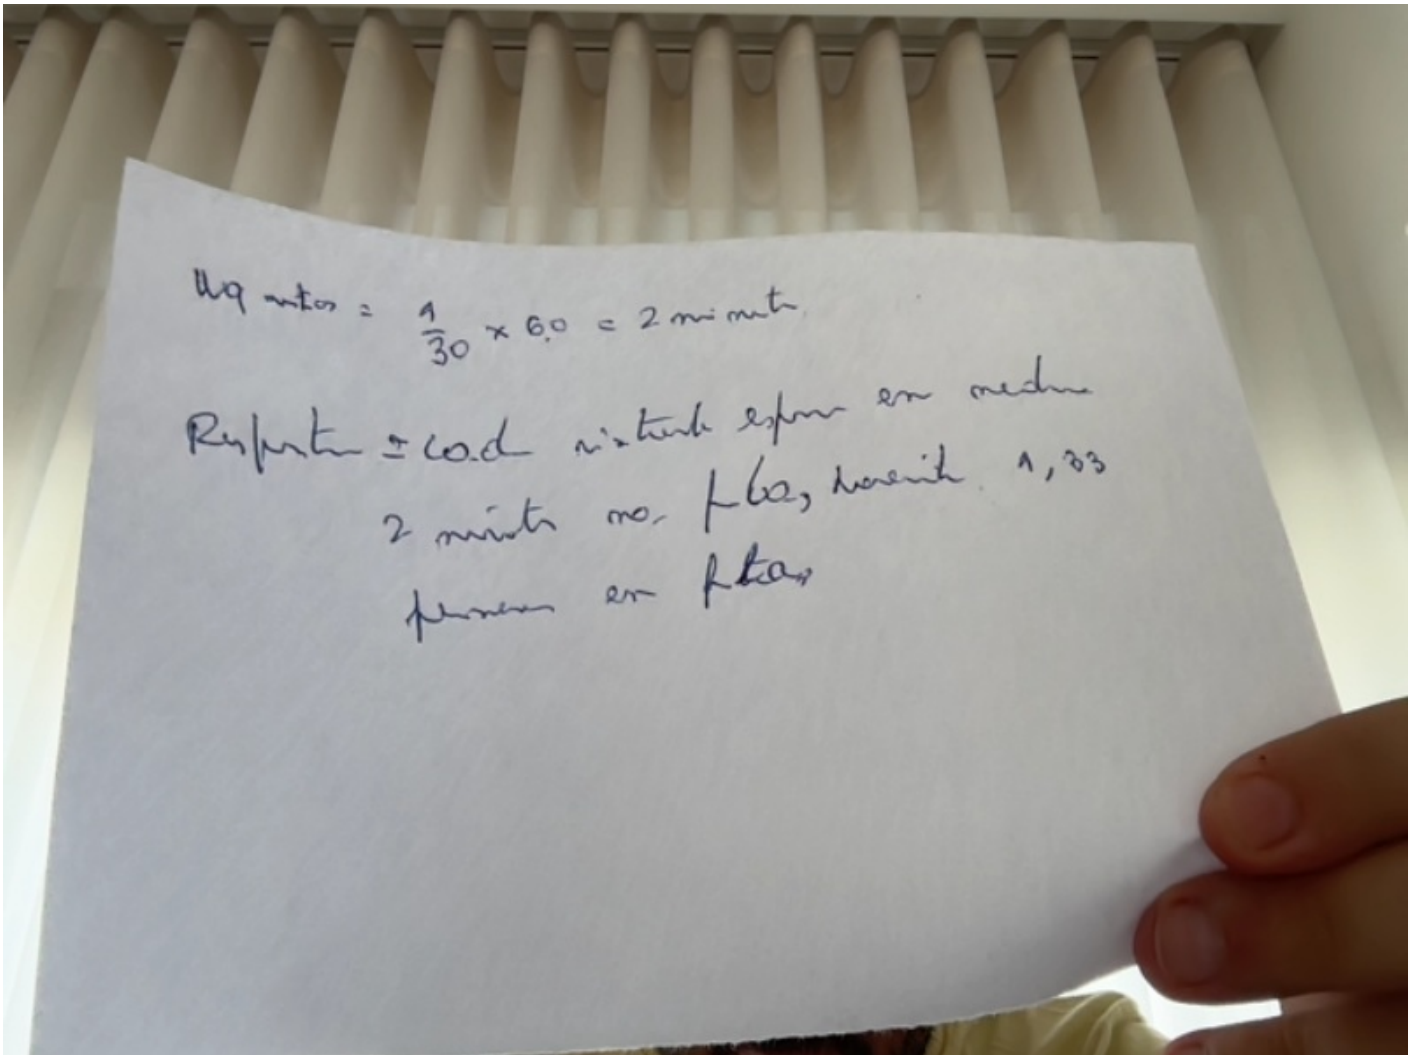 Wq minutos = 1/30 x 60 = 2 minutos
Resposta = cada visitante espera em média
2 minutos na fila, haverá 1,33
pessoas em fila